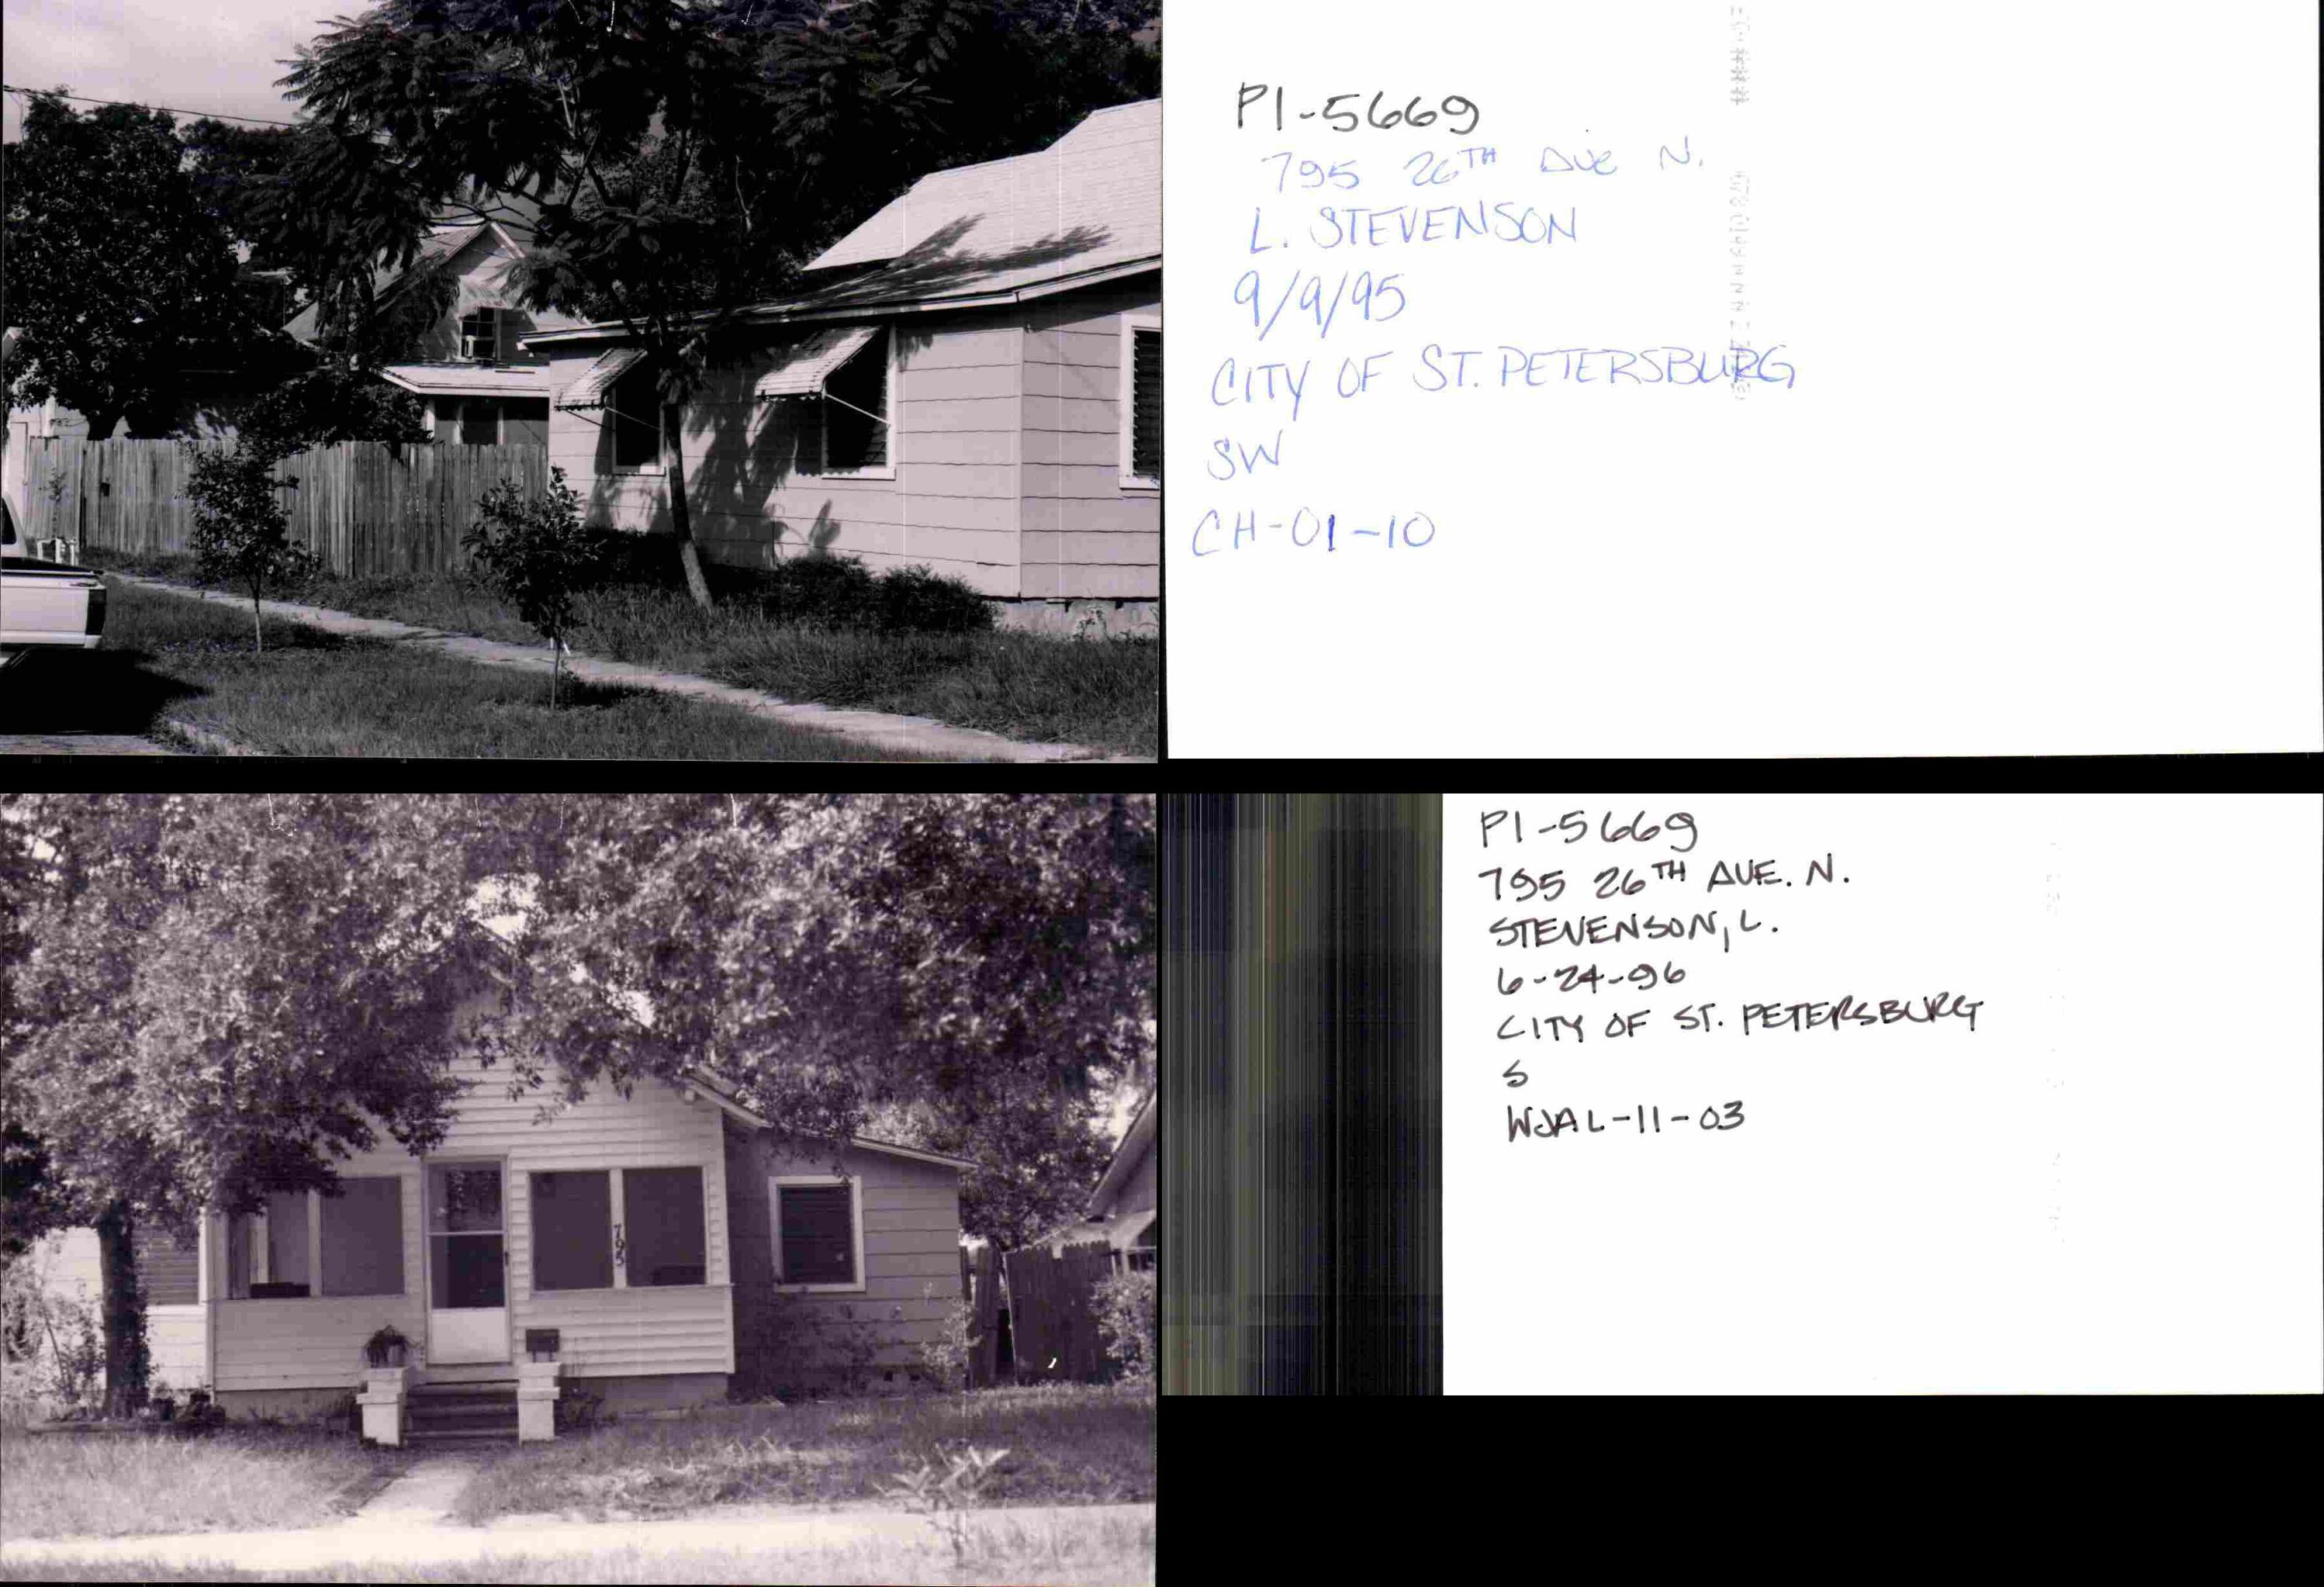 PI-5669
795 26TH AVE N.
L. STEVENSON
9/9/95
CITY OF ST. PETERSBURG
SW
CH-01-10
795
PI-5669
795 26TH AVE. N.
STEVENSON, L.
6-24-96
CITY OF ST. PETERSBURG
S
WJAL-11-03